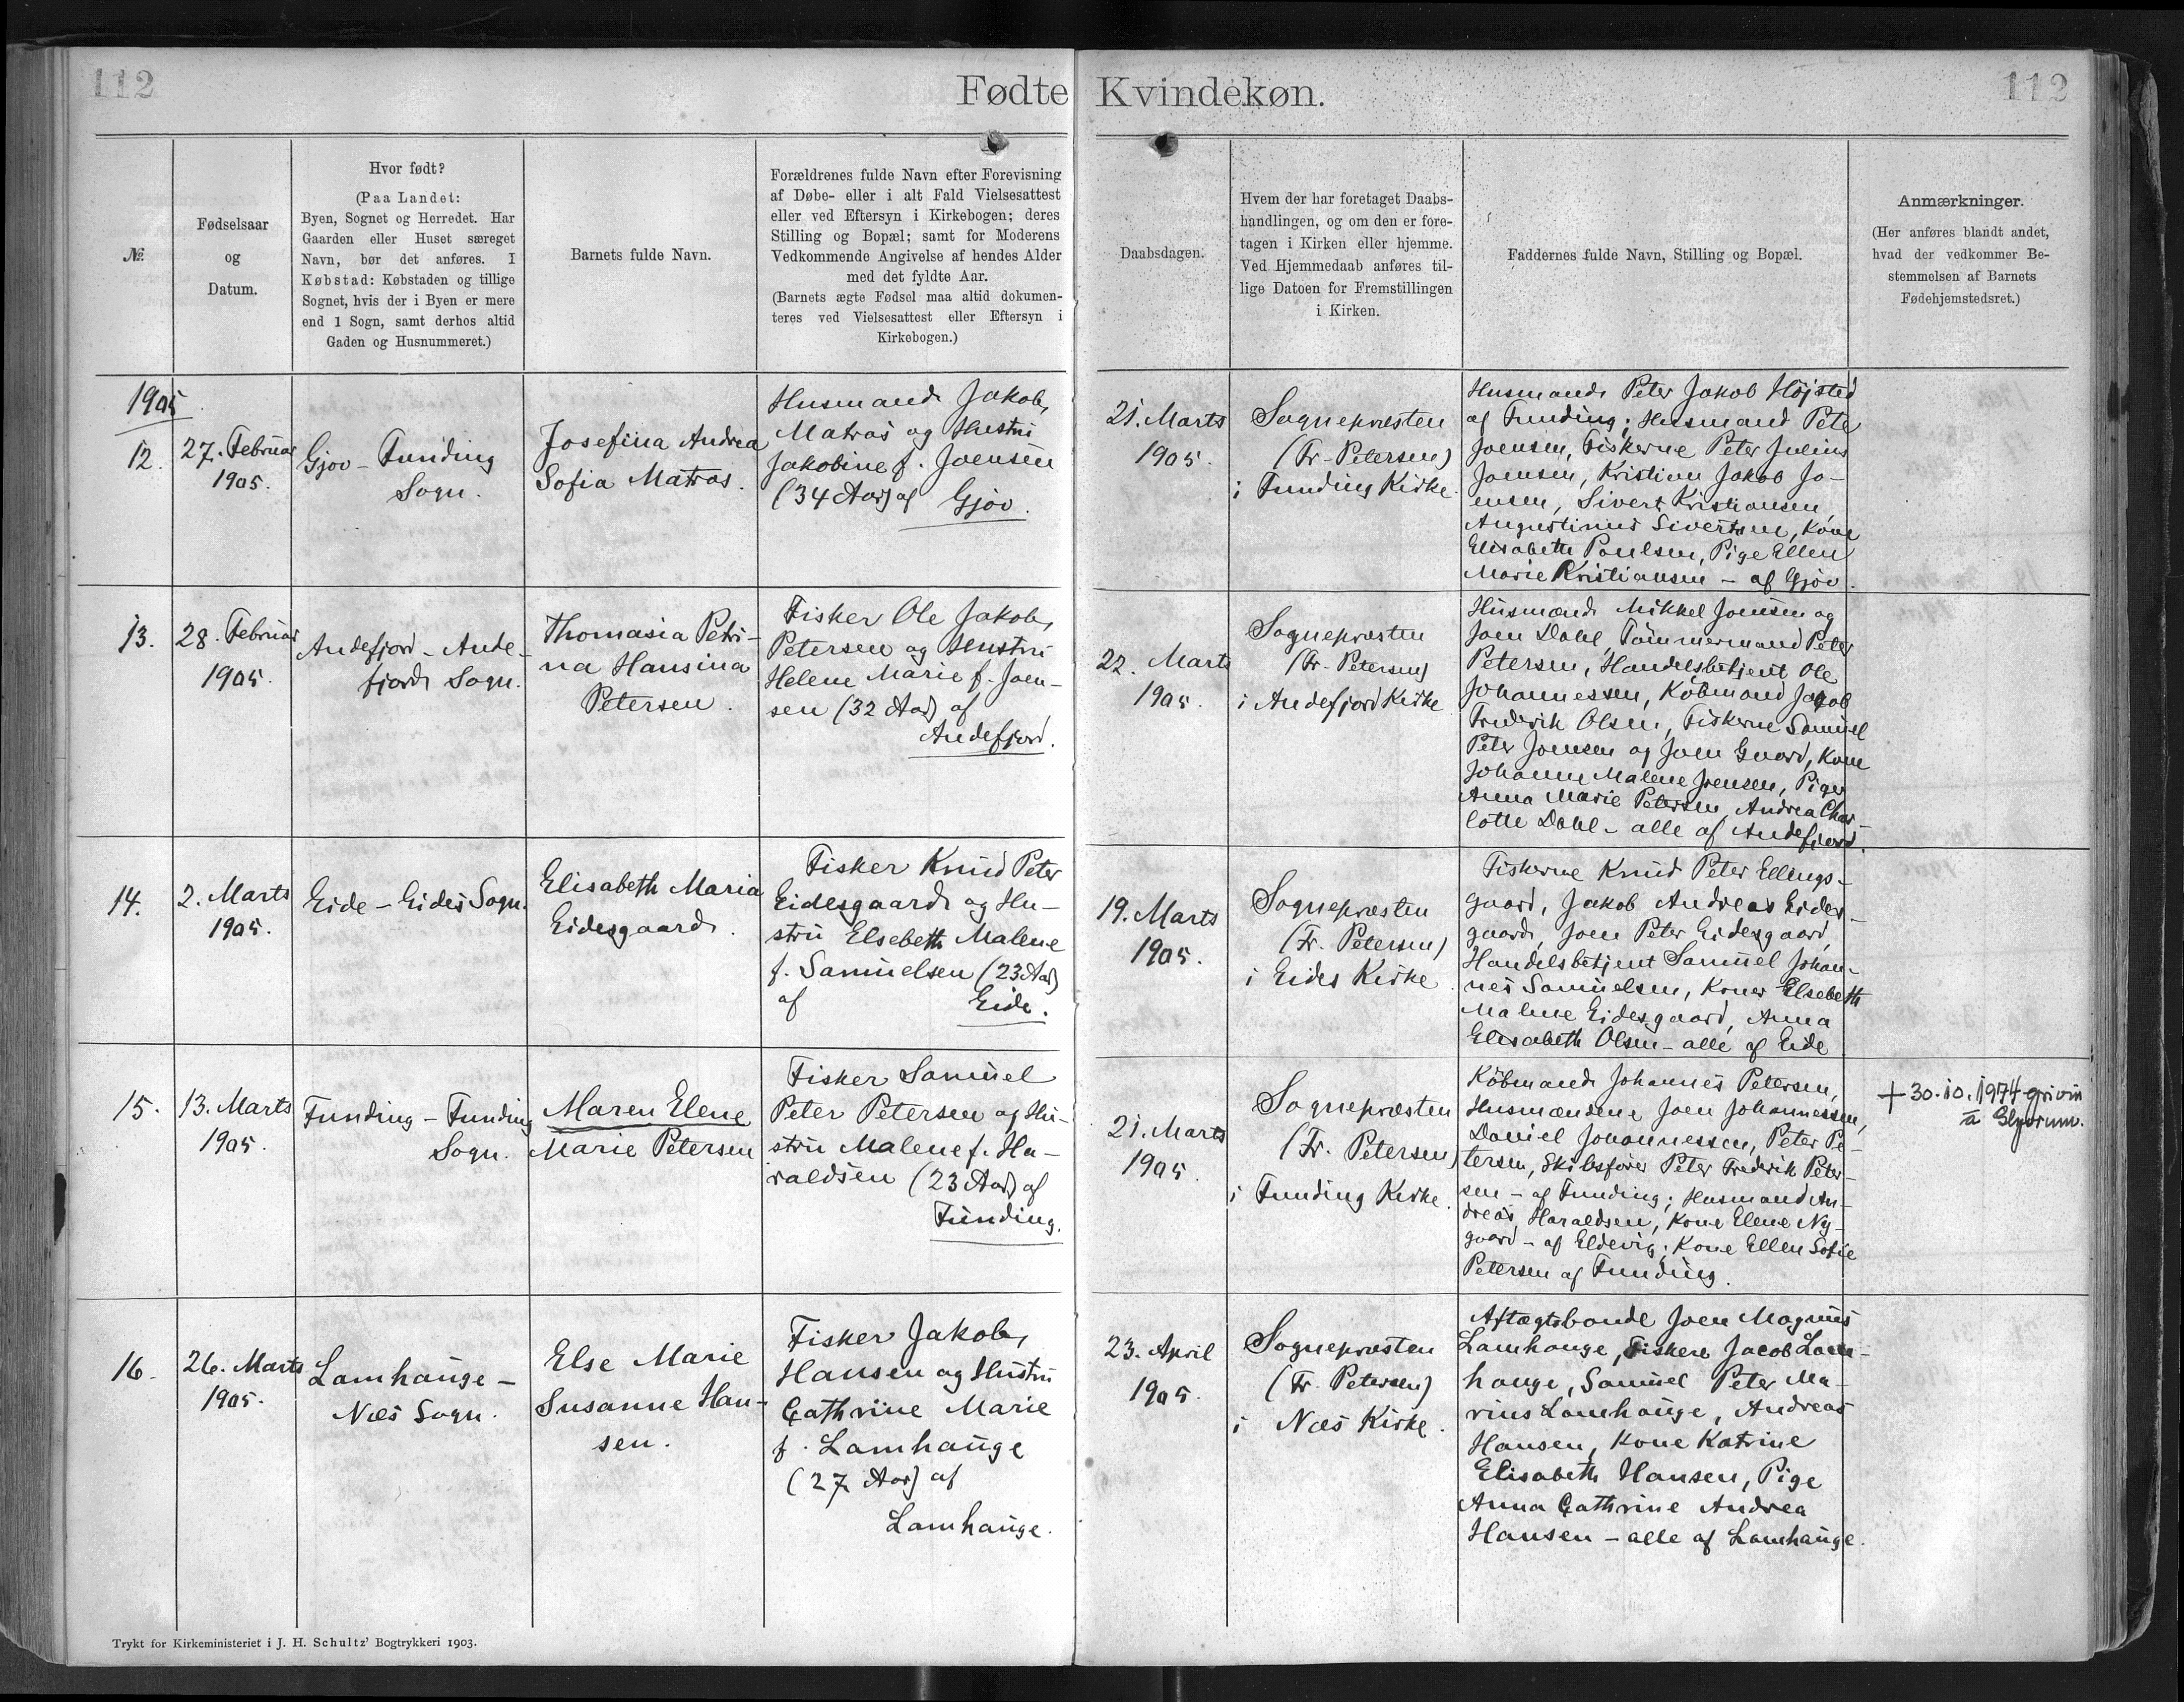 112
Fødte
Kvindekøn.
112
№
Fødselsaar
og
Datum.
Hvor født?
(Paa Landet:
Byen, Sognet og Herredet. Har
Gaarden eller Huset særeget
Navn, bør det anføres. I
Købstad: Købstaden og tillige
Sognet, hvis der i Byen er mere
end 1 Sogn, samt derhos altid
Gaden og Husnummeret.)
Barnets fulde Navn.
Forældrenes fulde Navn efter Forevisning
af Døbe- eller i alt Fald Vielsesattest
eller ved Eftersyn i Kirkebogen; deres
Stilling og Bopæl; samt for Moderens
Vedkommende Angivelse af hendes Alder
med det fyldte Aar.
(Barnets ægte Fødsel maa altid dokumen-
teres ved Vielsesattest eller Eftersyn i
Kirkebogen.)
Daabsdagen.
Hvem der har foretaget Daabs-
handlingen, og om den er fore-
tagen i Kirken eller hjemme.
Ved Hjemmedaab anføres til-
lige Datoen for Fremstillingen
i Kirken.
Faddernes fulde Navn, Stilling og Bopæl.
Anmærkninger.
(Her anføres blandt andet,
hvad der vedkommer Be-
stemmelsen af Barnets
Fødehjemstedsret.)
1905
12.
27. Februar
1905.
Gjov - Funding
Sogn.
Josefina Andrea
Sofia Matras.
Husmand Jakob
Matras og Hustru
Jakobine f. Joensen
(34 Aar) af Gjov.
21. Marts
1905.
Sognepræsten
(Fr. Petersen)
i Funding Kirke.
Husmand Peter Jakob Højsted
af Funding; Husmand Peter
Joensen, Fiskerne Peter Julius
Joensen, Kristian Jakob Jo-
ensen, Sivert Kristiansen,
Augustinus Sivertsen, Kone
Elisabeth Poulsen, Pige Ellen
Marie Kristiansen - af Gjov.
13.
28. Februar
1905.
Andefjord - Ande-
fjords Sogn.
Thomasia Petri-
na Hansina
Petersen.
Fisker Ole Jakob
Petersen og Hustru
Helene Marie f. Joen-
sen (32 Aar) af
Andefjord.
22. Marts
1905.
Sognepræsten
(Fr. Petersen)
i Andefjord Kirke
Husmænd Mikkel Joensen og
Joen Dahl, Tømmermand Peter
Petersen, Handelsbetjent Ole
Johannessen, Købmand Jakob
Frederik Olsen, Fiskerne Samuel
Peter Joensen og Joen Gaard, Kone
Johanne Malene Joensen, Piger
Anna Marie Petersen, Andrea Char-
lotte Dahl - alle af Andefjord.
14.
2. Marts
1905.
Eide - Eides Sogn.
Elisabeth Maria
Eidesgaard.
Fisker Knud Peter
Eidesgaard og Hu-
stru Elsebeth Malene
f. Samuelsen (23 Aar)
af Eide.
19. Marts
1905.
Sognepræsten
(Fr. Petersen)
i Eides Kirke.
Fiskerne Knud Peter Ellings-
gaard, Jakob Andreas Eides-
gaard, Joen Peter Eidesgaard,
Handelsbetjent Samuel Johan-
nes Samuelsen, Koner Elsebeth
Malene Eidesgaard, Anna
Elisabeth Olsen - alle af Eide
15.
13. Marts
1905.
Funding - Funding
Sogn.
Maren Elene
Marie Petersen
Fisker Samuel
Peter Petersen og Hu-
stru Malene f. Ha-
raldsen (23 Aar) af
Funding.
21. Marts
1905.
Sognepræsten
(Fr. Petersen)
i Funding Kirke.
Købmand Johannes Petersen,
Husmændene Joen Johannessen,
Daniel Johannessen, Peter Pe-
tersen, Skibsfører Peter Frederik Peter-
sen - af Funding; Husmand An-
dreas Haraldsen, Kone Elene Ny-
gaard - af Eldevig; Kone Ellen Sofie
Petersen af Funding.
+ 30.10.1974 grivin
á Glyvrum.
16.
26. Marts
1905.
Lamhauge -
Næs Sogn.
Else Marie
Susanne Han-
sen.
Fisker Jakob
Hansen og Hustru
Cathrine Marie
f. Lamhauge
(27 Aar) af
Lamhauge.
23. April
1905.
Sognepræsten
(Fr. Petersen)
i Næs Kirke.
Aftægtsbonde Joen Magnus
Lamhauge, Fiskere Jacob Lam-
hauge, Samuel Peter Ma-
rius Lamhauge, Andreas
Hansen, Kone Katrine
Elisabeth Hansen, Pige
Anna Cathrine Andrea
Hansen - alle af Lamhauge.
Trykt for Kirkeministeriet i J. H. Schultz' Bogtrykkeri 1903.